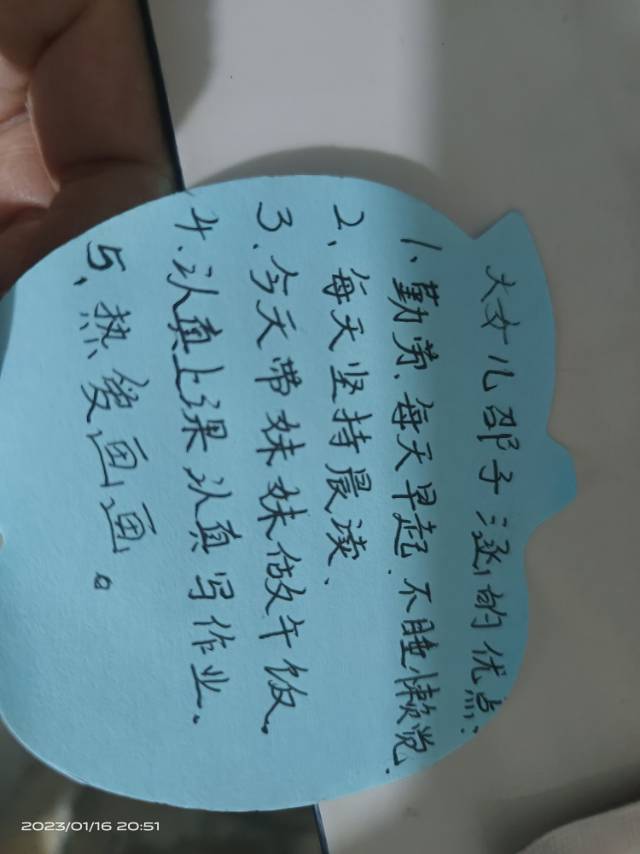 大女儿邵子涵的优点:
1、勤劳、每天早起.不睡懒觉.
2、每天坚持晨读、
3、今天带妹妹做午饭.
4、认真上课认真写作业.
5、热爱画画。
2023/01/16 20:51